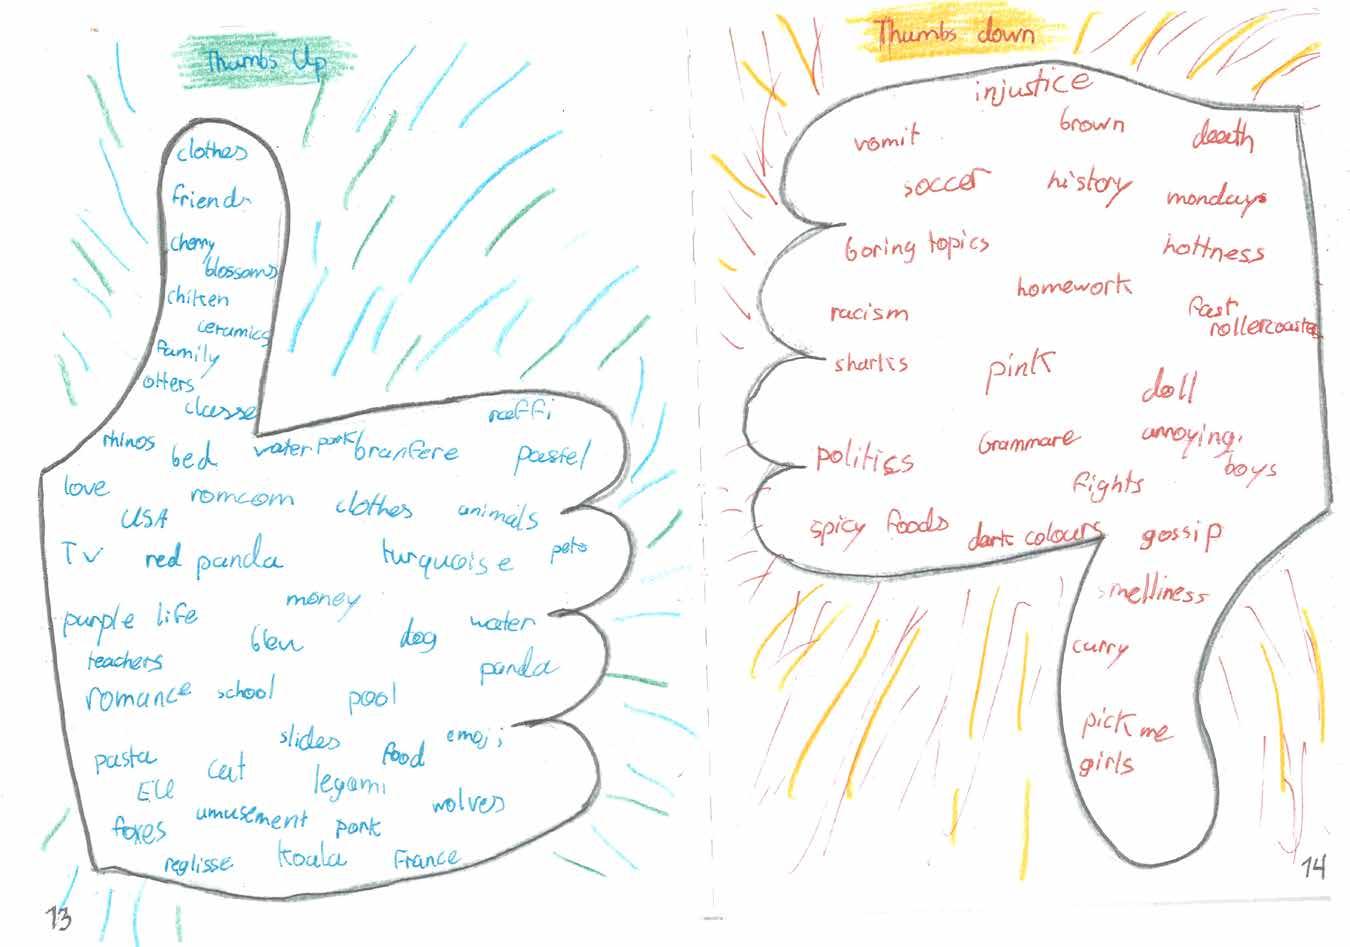 Thumbs Up
clothes
friends
cherry
blossoms
chiken
ceramics
family
otters
classe
raffi
rhinos bed water park branfere pastel
love romcom clothes animals
USA
TV red panda turquoise pets
purple life money
bleu dog water
teachers panda
romance school pool
slides emoji
pasta cat food
EU legami
foxes amusement park wolves
reglisse koala France
13
Thumbs down
injustice
vomit brown death
soccer history mondays
boring topics hottness
homework
racism fast
rollercoaster
sharks pink
doll
politics Grammare annoying
boys
fights
spicy foods dark colours gossip
smelliness
curry
pick me
girls
14